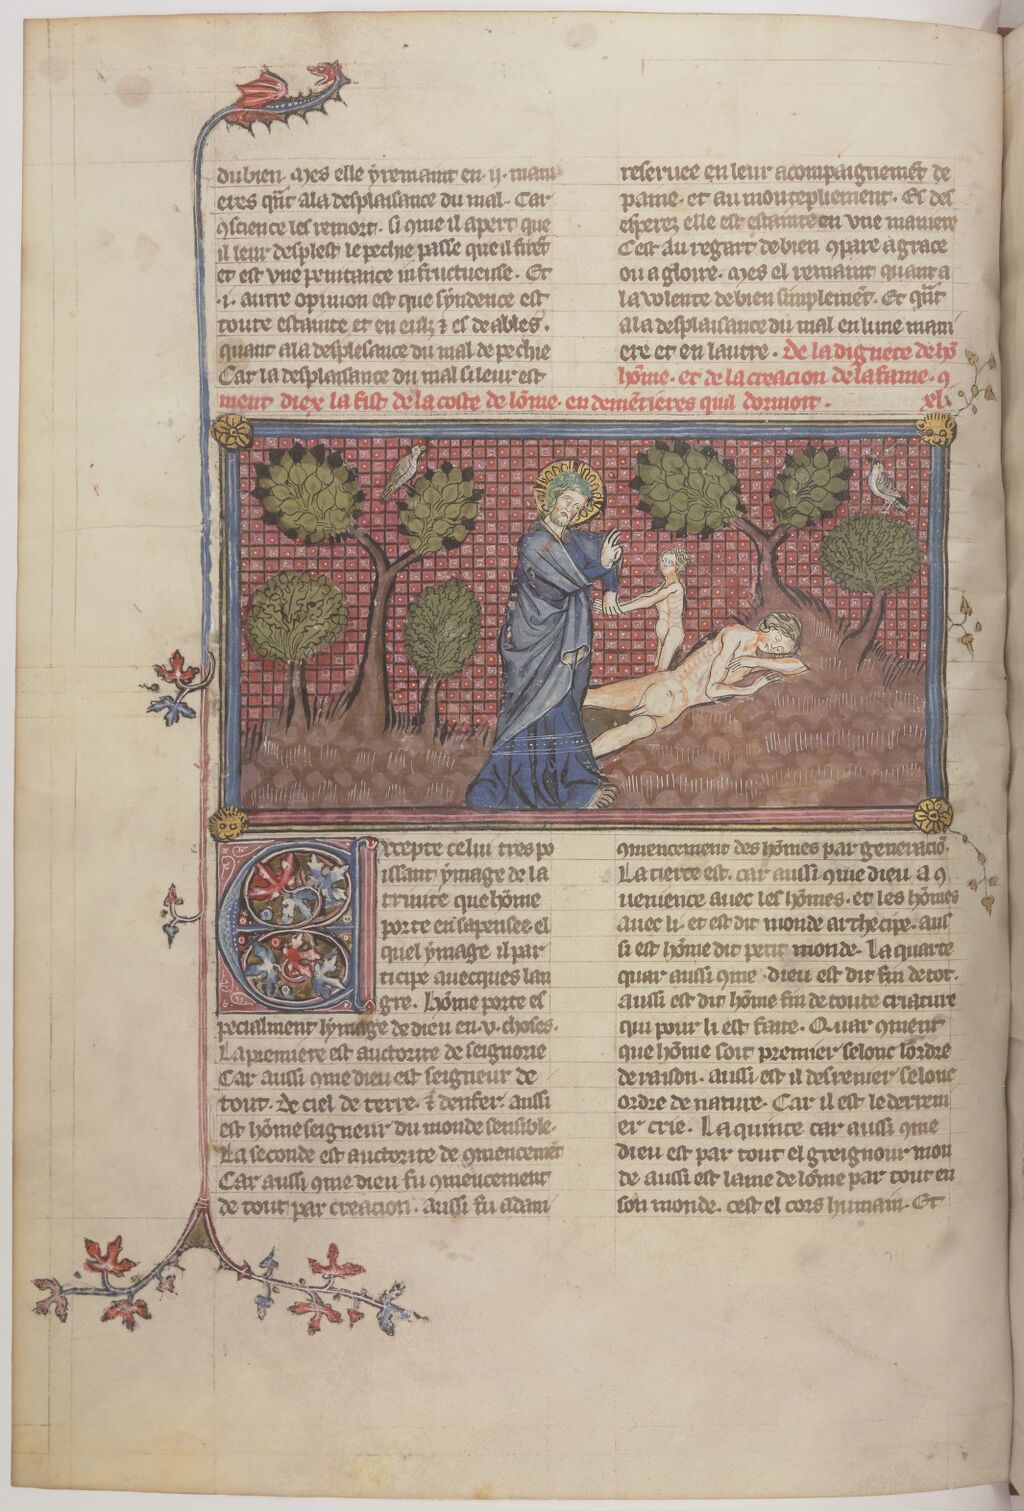 du bien. Mes elle y remaint en .ij. mani
eres qñt a la desplaisance du mal. Car
9science les remort. si 9me il apert que
il leur desplest le pechie passe que il firẽt
et est vne penitance infructueuse. Et
.i. autre opinion est que syndence est
toute estainte et en eulz ⁊ es deables.
quant a la desplesance du mal de pechie
Car la desplaisance du mal si leur est
reseruee en leur acompaignemẽt de
paine. et au montepliement. Es des
esperez elle est estainte en vne maniere
Cest au regart de bien 9pare a grace
ou a gloire. Mes el remaint quant a
la volente de bien simplemẽt. Et qñt
a la desplaisance du mal en lune mani
ere et en lautre. De la dignete de hõ
hõme. et de la creacion de la fame. 9
ment diex la fist de la coste de lõme. en demẽtieres quil dormoit. xli
Excepte celui tres po
issant ymage de la
trinite que hõme
porte en sa pensee. el
quel ymage il par
ticipe auecques lan
gre. Hõme porte es
pecialment lymage de dieu en .v. choses.
La premiere est auctorite de seignorie
Car aussi 9me dieu est seigneur de
tout. De ciel de terre. ⁊ denfer. aussi
est hõme seigneur du monde sensible.
La seconde est auctorite de 9mencemẽt
Car aussi 9me dieu fu 9mencement
de tout par creacion. aussi fu adam
9mencement des hõmes par generaciõ.
La tierce est. car aussi 9me dieu a 9
uenience auec les hõmes. et les hõmes
auec li. et est dit monde archecipe. aus
si est hõme dit petit monde. La quarte
quar aussi 9me dieu est dit fin de tot.
aussi est dit hõme fin de toute criature
qui pour li est faite. Quar 9ment
que hõme soit premier selonc lordre
de raison. aussi est il desrenier selonc
ordre de nature. Car il est le derreni
er crie. La quinte car aussi 9me
dieu est par tout el greignour mon
de aussi est lame de lõme par tout en
son monde. cest el cors humain. Et